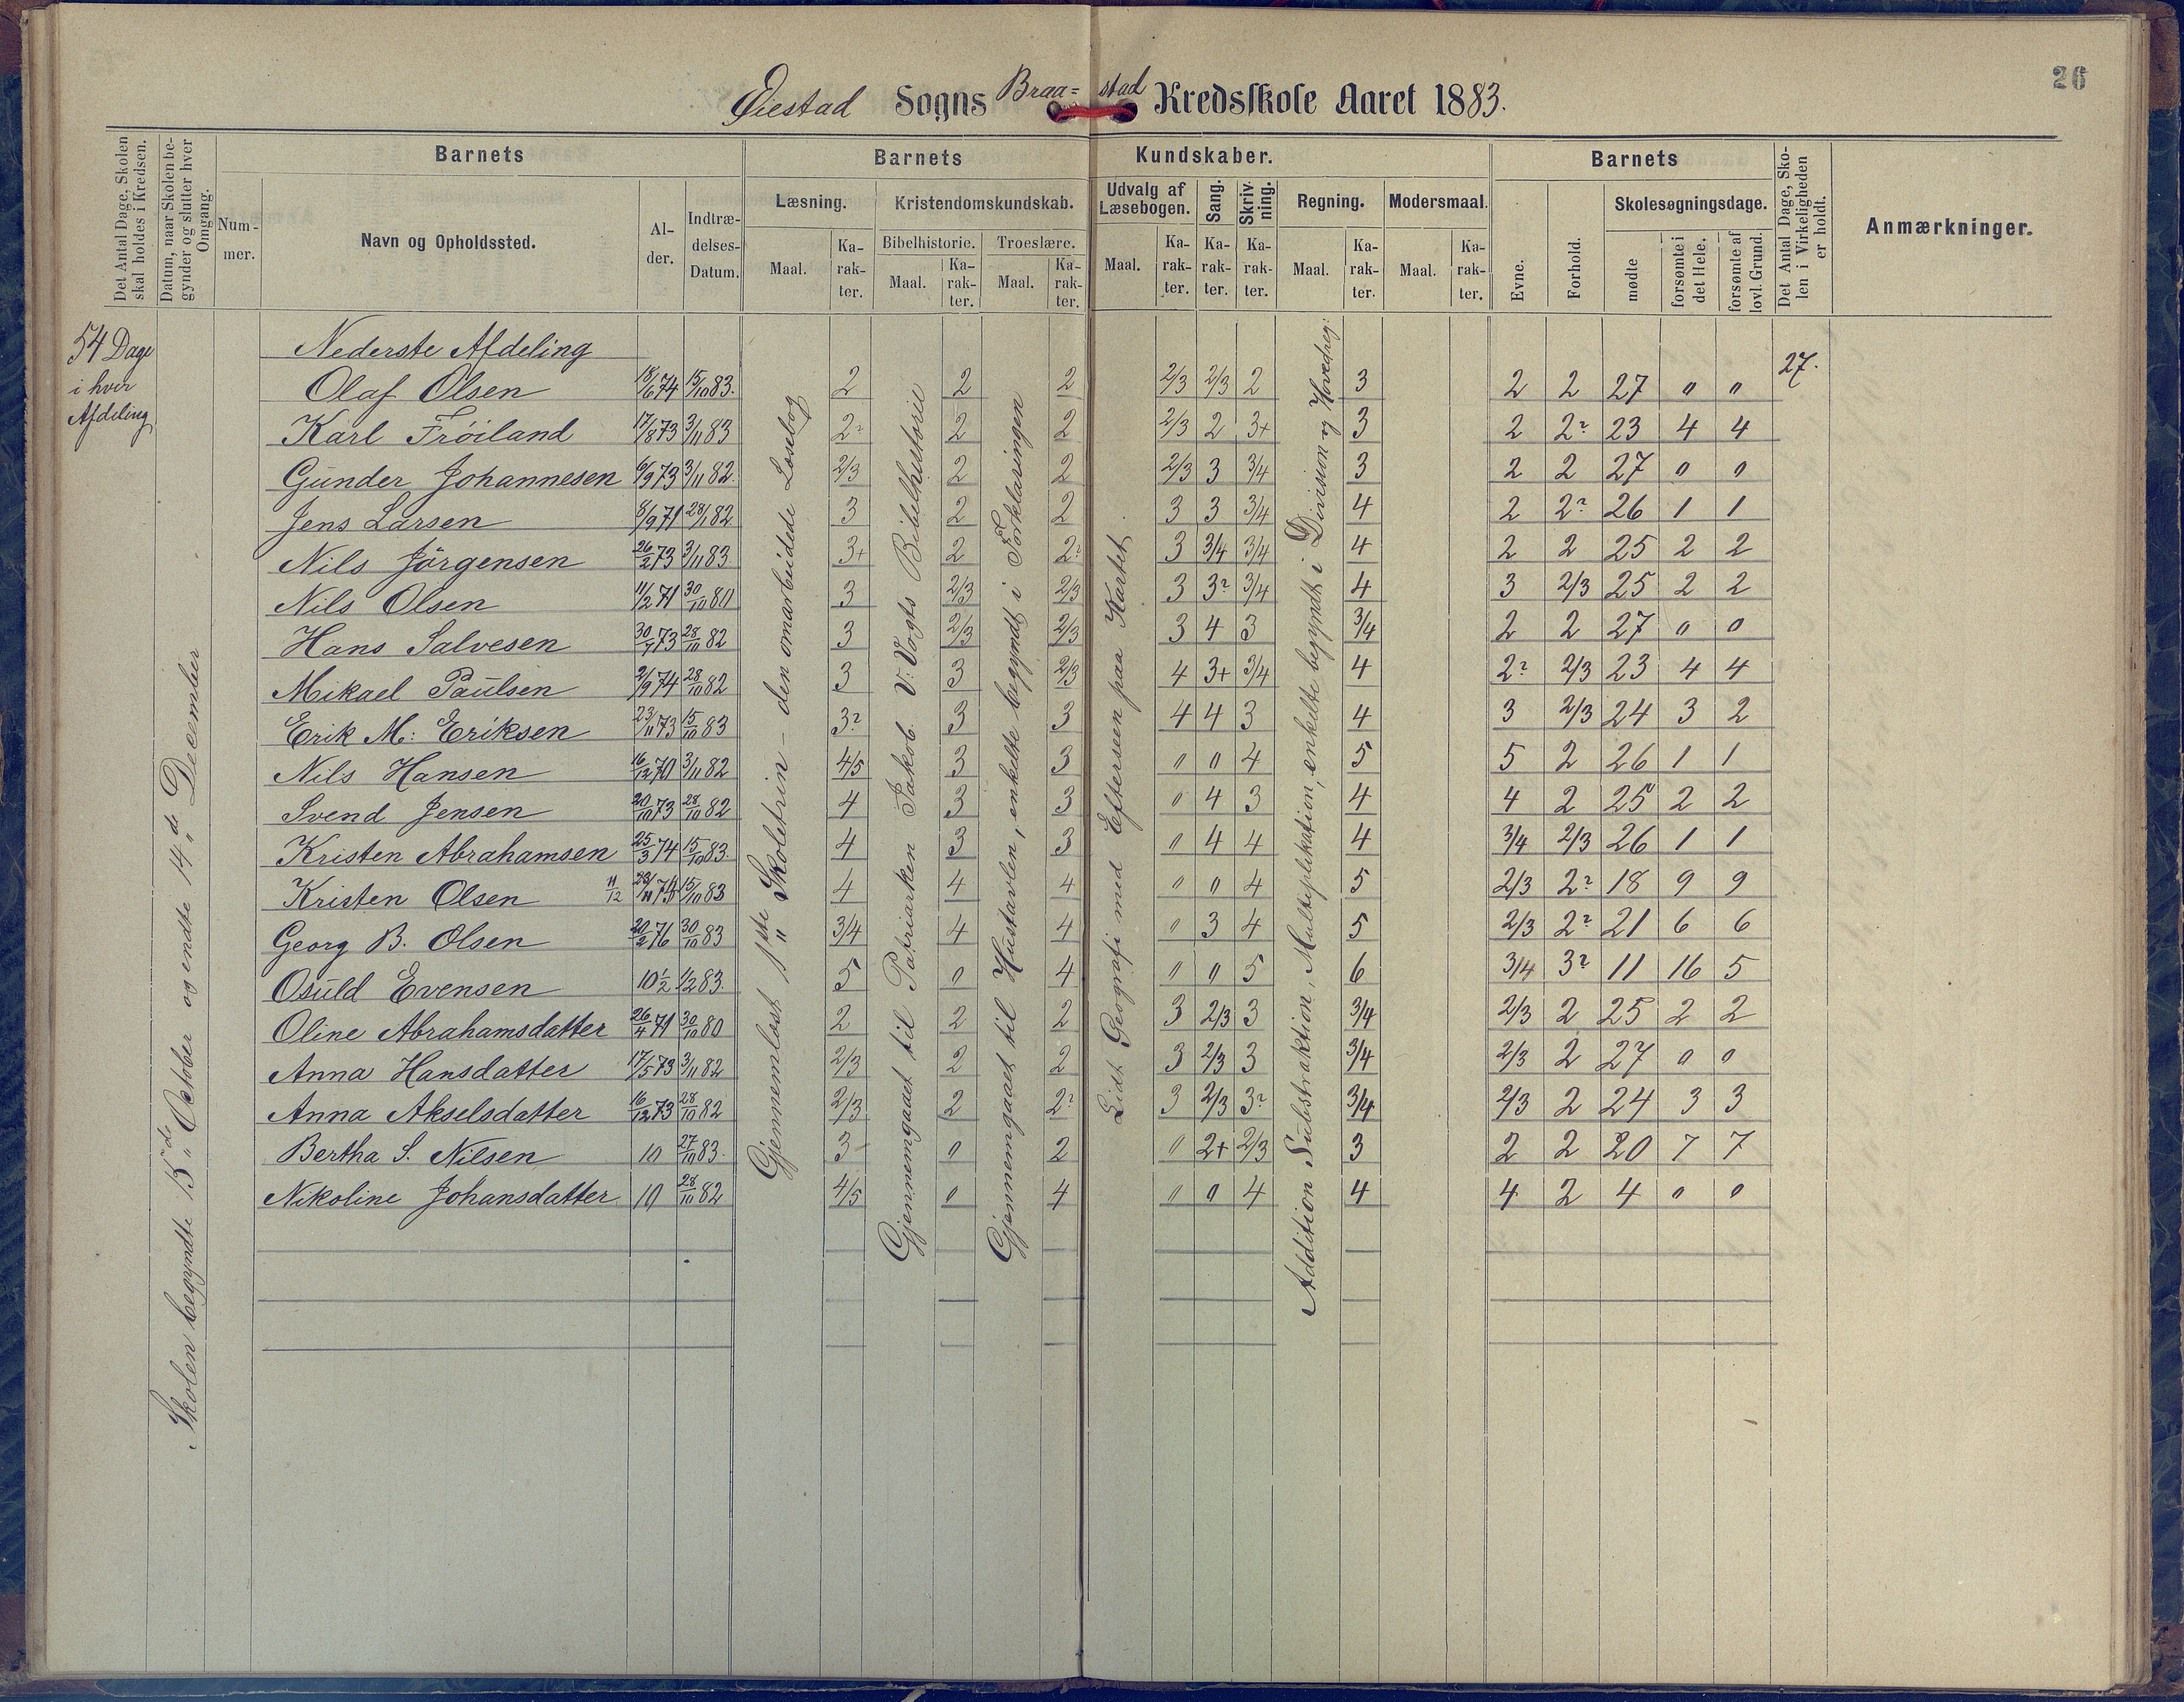 26
Øiestad Sogns Braa= stad Kredsskole Aaret 1883.
Det Antal Dage, Skolen skal holdes i Kredsen.
Datum, naar Skolen begynder og slutter hver Omgang.
Barnets
Num-
mer.
Navn og Opholdssted.
Al-
der.
Indtræ-
delses-
Datum.
Barnets Kundskaber.
Læsning.
Maal.
Ka-
rak-
ter.
Kristendomskundskab.
Bibelhistorie.
Maal.
Ka-
rak-
ter.
Troeslære.
Maal.
Ka-
rak-
ter.
Udvalg af
Læsebogen.
Maal.
Ka-
rak-
ter.
Sang.
Ka-
rak-
ter.
Skriv-
ning.
Ka-
rak-
ter.
Regning.
Maal.
Ka-
rak-
ter.
Modersmaal.
Maal.
Ka-
rak-
ter.
Barnets
Evne.
Forhold.
Skolesøgningsdage.
mødte
forsømte i
det Hele.
forsømte af
lovl. Grund.
Det Antal Dage, Sko-
len i Virkeligheden
er holdt.
Anmærkninger.
54 Dage
i hver
Afdeling
Skolen begyndte 15de October og endte 14de December
Gjennemløst 1ste Skoletrin – den omarbeidede Læsebog
Gjennemgaaet til Patriarken Jakob. V: Vogts Bibelhistorie
Gjennemgaaet til Hustavlen, enkelte begyndt i Forklaringen
Lidt Geografi med Efterseen paa Kartet
Addition Substraktion, Multiplikation, enkelte begyndt i Division og Hovedreg:
27.
Nederste Afdeling
Olaf Olsen 18/6 74 15/10 83. 2 2 2 2/3 2/3 2 3 2 2 27 " "
Karl Frøiland 17/8 73 3/11 83 2? 2 2 2/3 2 3+ 3 2 2? 23 4 4
Gunder Johannesen 6/9 73 3/11 82. 2/3 2 2 2/3 3 3/4 3 2 2 27 " "
Jens Larsen 8/9 71 28/1 82 3 2 2 3 3 3/4 4 2 2? 26 1 1
Nils Jørgensen 26/2 73 3/11 83. 3+ 2 2? 3 3/4 3/4 4 2 2 25 2 2
Nils Olsen 11/2 71 30/10 80 3 2/3 2/3 3 3? 3/4 4 3 2/3 25 2 2
Hans Salvesen 30/7 73 28/10 82 3 2/3 2/3 3 4 3 3/4 2 2 27 " "
Mikael Paulsen 2/9 74 28/10 82 3 3 2/3 4 3+ 3/4 4 2? 2/3 23 4 4
Erik M: Eriksen 23/11 73 15/10 83 3? 3 3 4 4 3 4 3 2/3 24 3 2
Nils Hansen 16/12 70 3/11 82 4/5 3 3 " " 4 5 5 2 26 1 1
Svend Jensen 20/10 73 28/10 82 4 3 3 " 4 3 4 4 2 25 2 2
Kristen Abrahamsen 25/3 74 15/10 83. 4 3 3 " 4 4 4 3/4 2/3 26 1 1
Kristen Olsen 11/12 15/10 83 4 4 4 " " 4 5 2/3 2? 18 9 9
Georg B. Olsen 20/2 76 30/10 83 3/4 4 4 " 3 4 5 2/3 2? 21 6 6
Osuld Evensen 10 1/2 1/2 83. 5 " 4 " " 5 6 3/4 3? 11 16 5
Oline Abrahamsdatter 26/4 71 30/10 80 2 2 2 3 2/3 3 3/4 2/3 2 25 2 2
Anna Hansdatter 17/5 73 3/11 82 2/3 2 2 3 2/3 3 3/4 2/3 2 27 " "
Anna Akselsdatter 16/12 73 28/10 82 2/3 2 2? 3 2/3 3? 3/4 2/3 2 24 3 3
Bertha S. Nilsen 10 27/10 83. 3 " 2 " 2+ 2/3 3 2 2 20 7 7
Nikoline Johansdatter 10 28/10 82 4/5 " 4 " " 4 4 4 2 4 " "